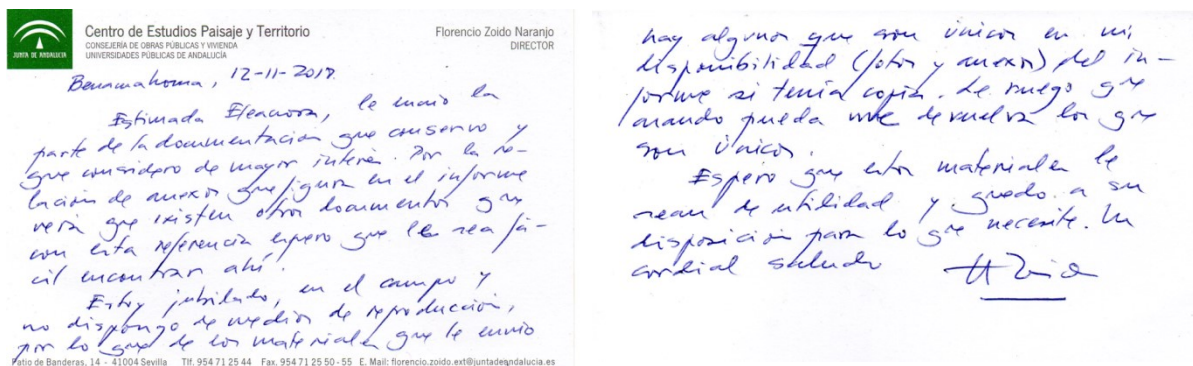 JUNTA DE ANDALUCIA
Centro de Estudios Paisaje y Territorio
CONSEJERÍA DE OBRAS PÚBLICAS Y VIVIENDA
UNIVERSIDADES PÚBLICAS DE ANDALUCÍA
Florencio Zoido Naranjo
DIRECTOR
Benamahoma, 12-11-2017
Estimada Eleonora, le envio la
parte de la documentación que conservo y
que considero de mayor interés. Por la re-
lación de anexos que figura en el informe
verá que existen otros documentos que
con esta referencia espero que le sea fá-
cil encontrar ahí.
Estoy jubilado, en el campo y
no dispongo de medios de reproducción,
por lo que de los materiales que le envio
Patio de Banderas, 14 - 41004 Sevilla Tlf. 954 71 25 44 Fax. 954 71 25 50 - 55 E. Mail: florencio.zoido.ext@juntadeandalucia.es
hay algunos que son únicos en mi
disponibilidad (fotos y anexos) del in-
forme si tenía copia. Le ruego que
cuando pueda me devuelva los que
son únicos.
Espero que estos materiales le
sean de utilidad y quedo a su
disposición para lo que necesite. Un
cordial saludo